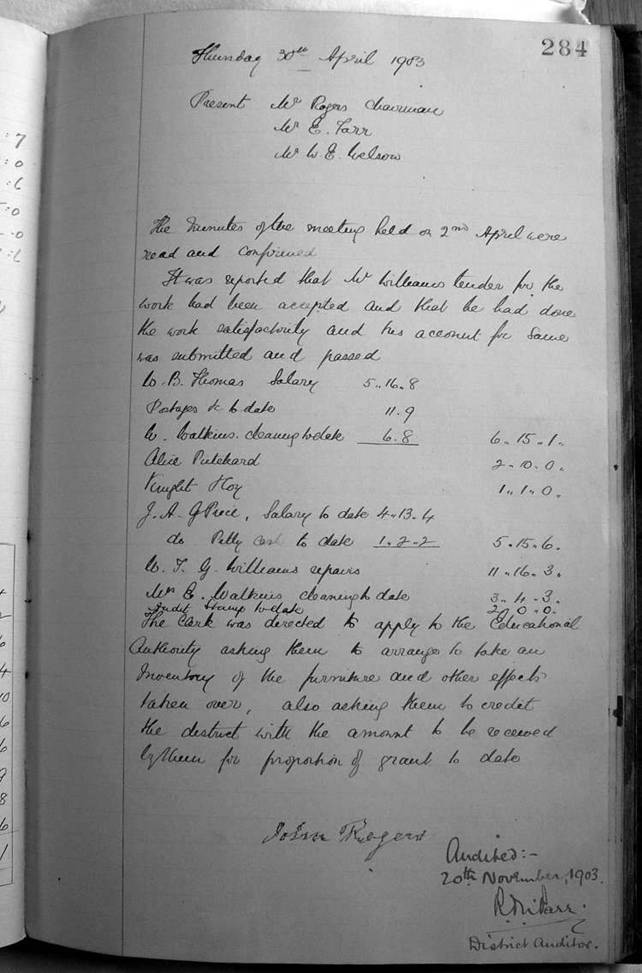 284
Thursday 30th April 1903
Present Mr Rogers Chairman
Mr E. Farr
Mr W. E. Welson
The Minutes of the meeting held on 2nd April were
read and confirmed
It was reported that Mr Williams tender for the
work had been accepted and that he had done
the work satisfactorily and his account for same
was submitted and passed
W. B. Thomas Salary 5..16..8
Postages &c to date 11.9
W. Watkins cleaning to date 6.8 6..15..1..
Alice Pritchard 2-10.0.
Knight Hoy 1..1..0.
J. A. G Price, Salary to date 4-13.4
do Petty cash to date 1.2-2 5.15..6.
W. T. G. Williams repairs 11..16..3.
Mrs E. Watkins cleaning to date 3..4..3.
Audit Stamp to date 2..0..0..
The Clerk was directed to apply to the Educational
Authority asking them to arrange to take an
Inventory of the furniture and other effects
taken over, also asking them to credit
the district with the amount to be received
by them for proportion of grant to date
John Rogers
Audited:-
20th November, 1903.
District Auditor.